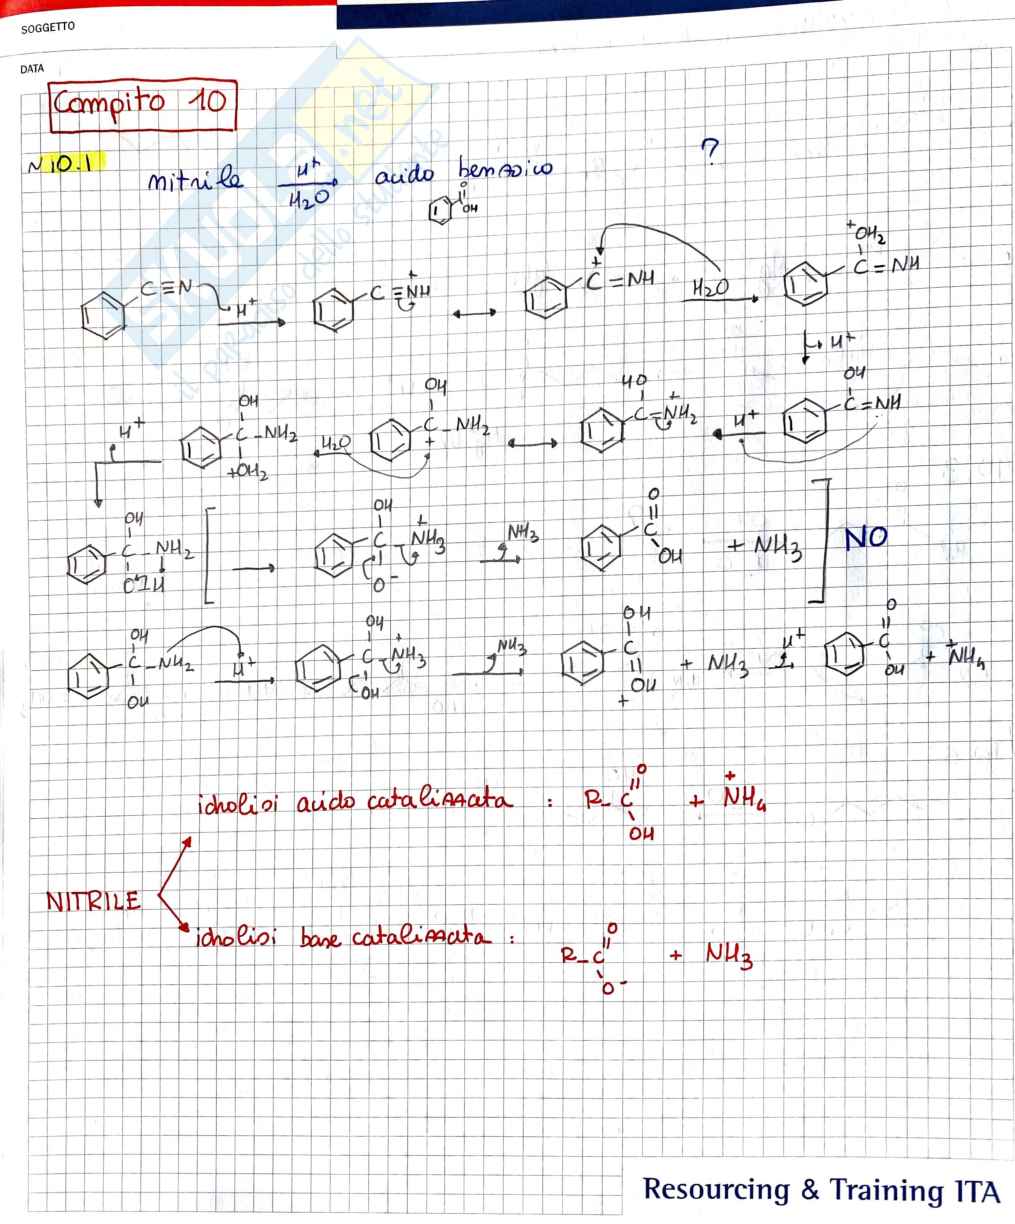 SOGGETTO
DATA
Compito 10
N 10.1 nitrile H+ H2O acido benzoico OH O ?
C≡N H+ C≡NH + C=NH + H2O +OH2 C=NH
H+
OH C-NH2 +OH2 H+ H2O OH C-NH2 + HO C=NH2 + H+ OH C=NH
OH C-NH2 OH OH C-NH3 + O- NH3 O C OH + NH3 NO
OH C-NH2 OH H+ OH C-NH3 + OH NH3 OH C OH + + NH3 H+ O C OH + +NH4
idrolisi acido catalizzata : R-C O OH + +NH4
NITRILE
idrolisi base catalizzata : R-C O O- + NH3
Resourcing & Training ITA